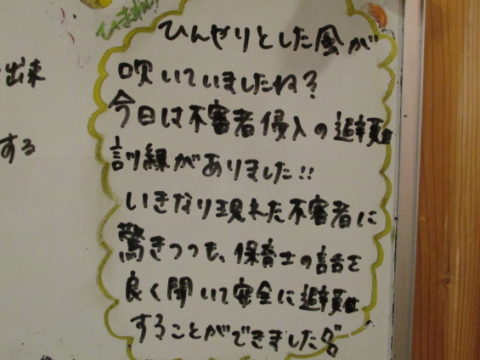 ひまわり
ひんやりとした風が
吹いていましたね?
出来
今日は不審者侵入の避難
する
訓練がありました!!
いきなり現れた不審者に
驚きつつも、保育士の話を
良く聞いて安全に避難
することができました